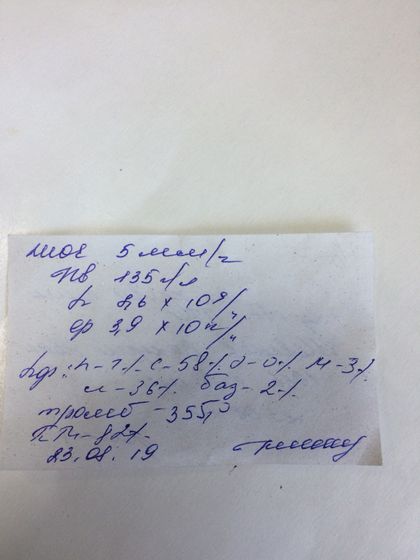 СОЕ 5 мм/ч
Нв 135 г/л
L 8,6 х 10 9/л
эр 3,9 х 10 12/л
п-1% с-58% э-0% м-3%
л-36% баз-2%
тромб-355,0
ПТИ-82%
23.08.19